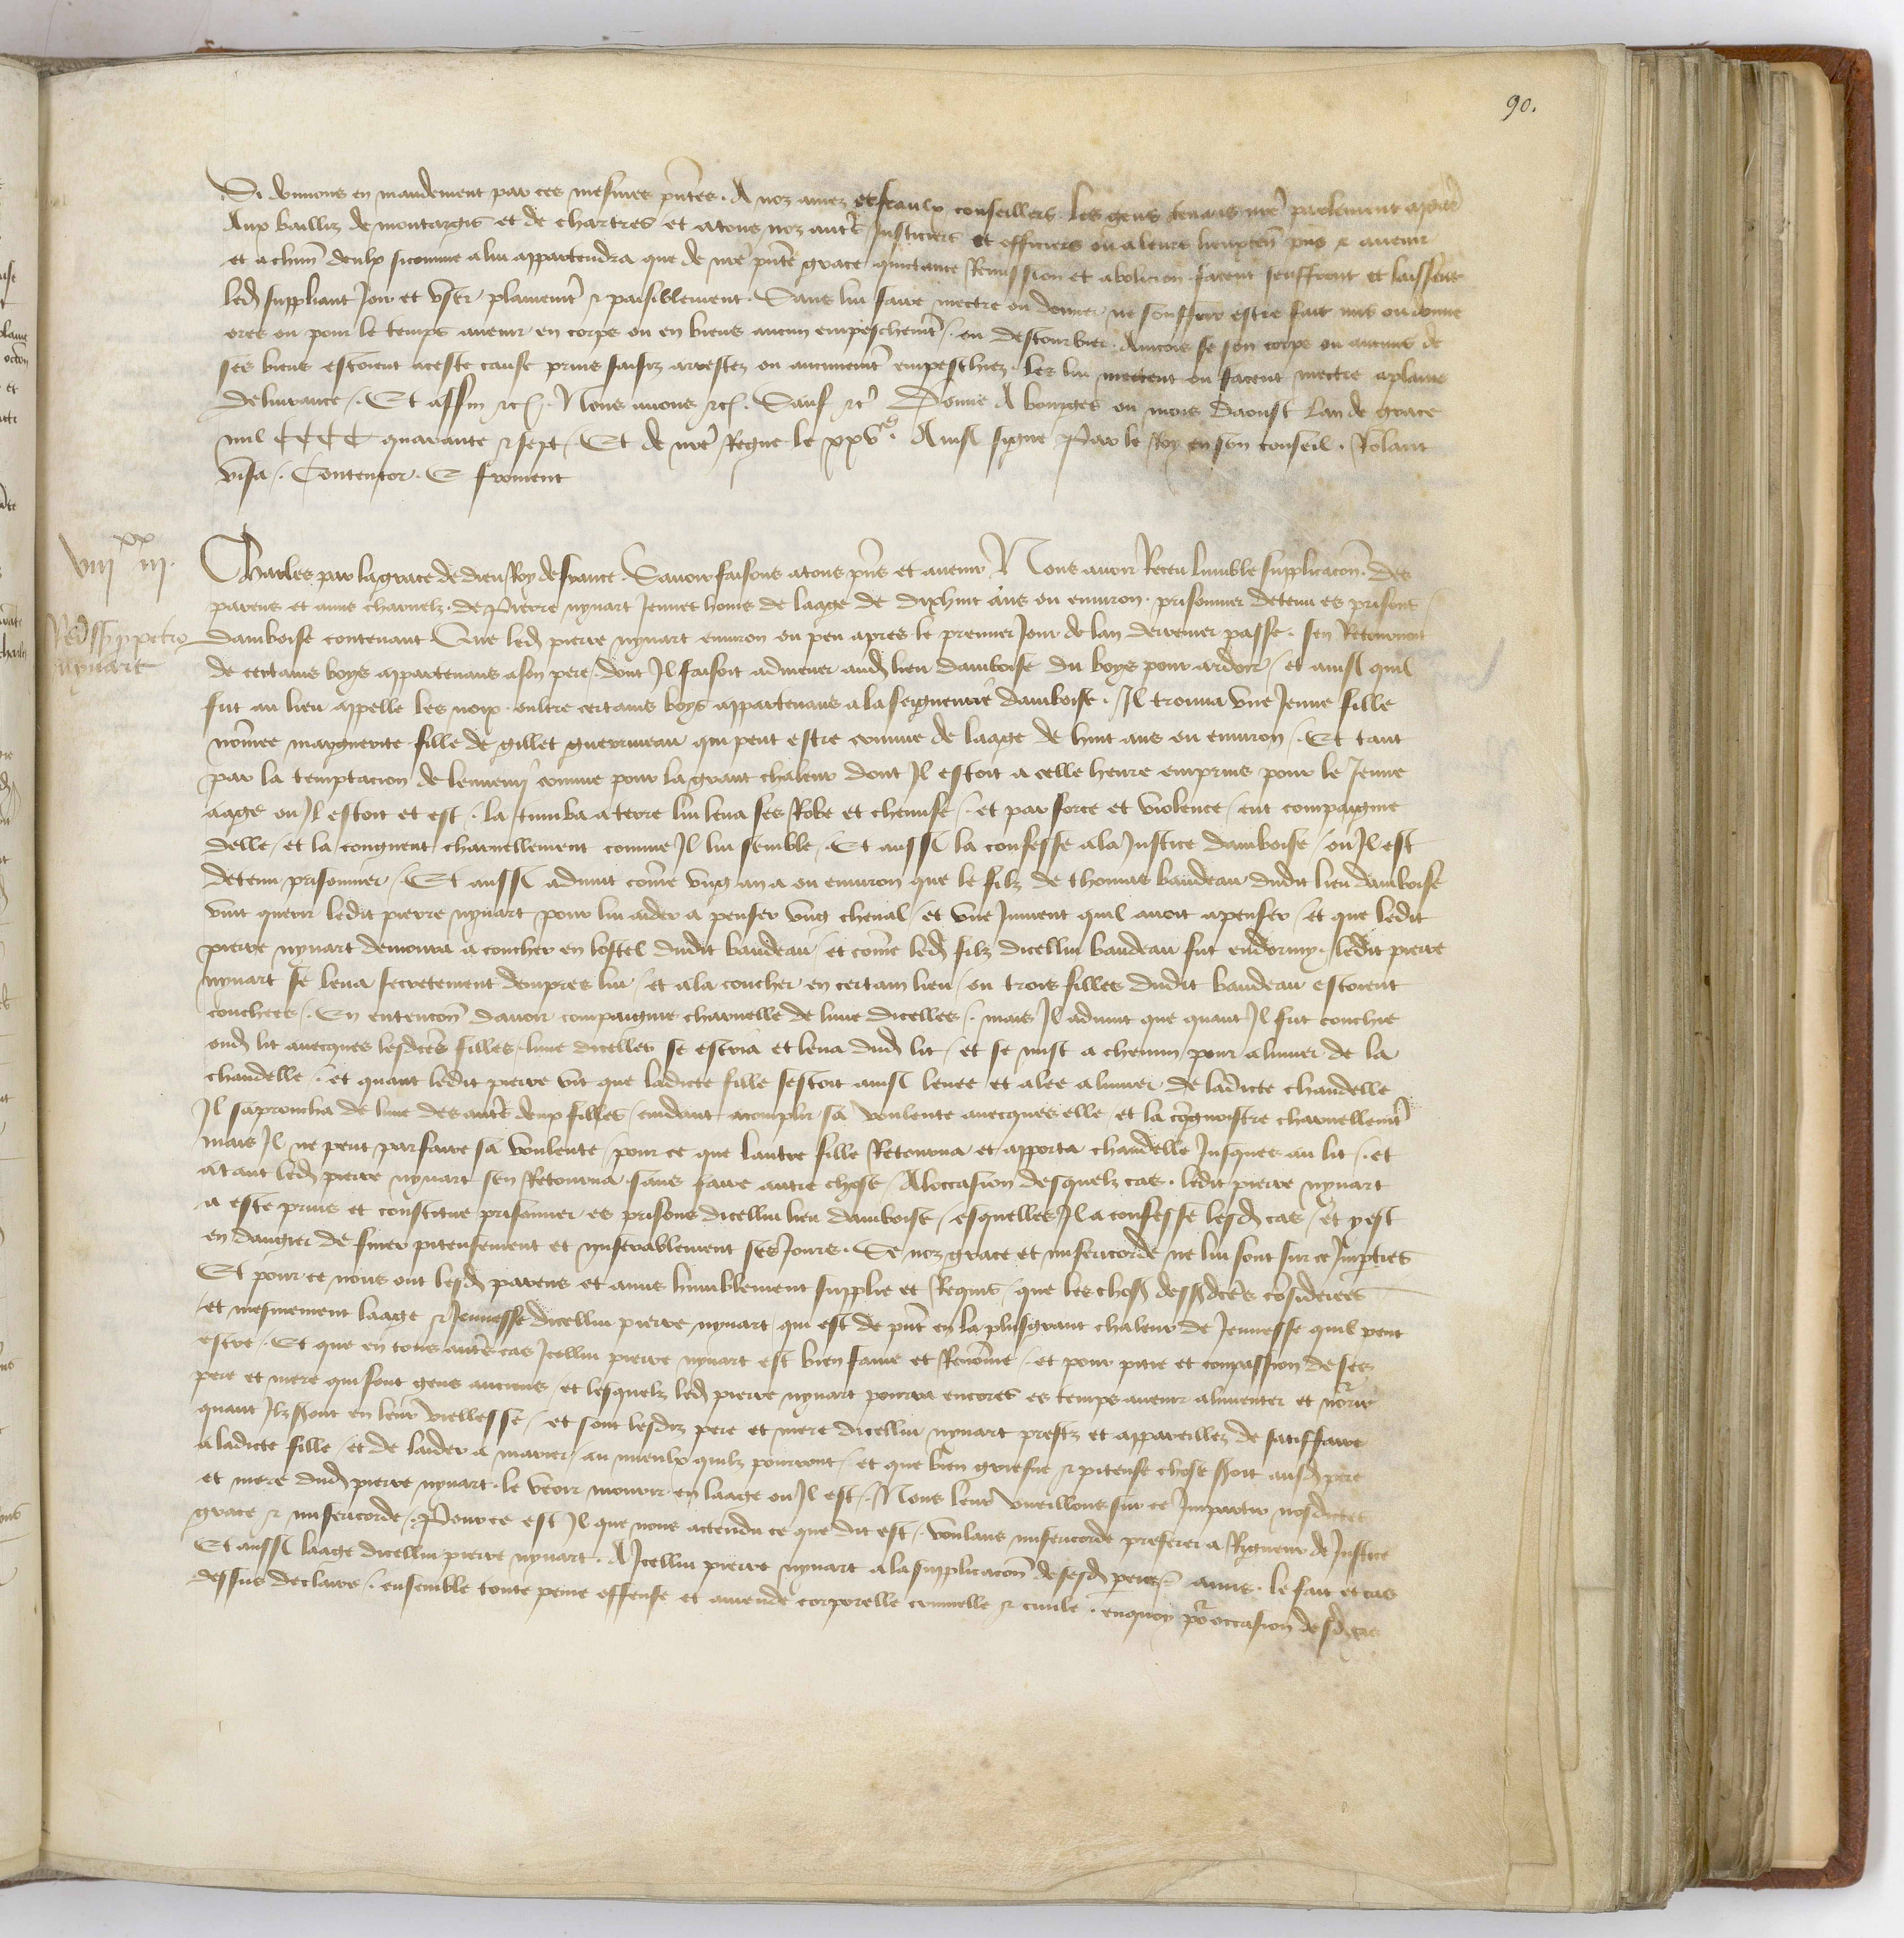 90.
Si donnons en mandement par ces mesmes pntes. A noz amez et feaulx conseillers les gens tenans nre parlement a
Aux bailliz de montargis et de chartres et atous noz autres Justiciers et officiers ou a leurs lieuxten pns et avenir
et a chun deulx sicomme a lui appartendra que de nre pnte grace quictance Remission et abolicion facent seuffrent et laissent
led suppliant Joir et user plainement et paisiblement. Sans lui faire mectre ou donner ne souffrir estre fait mis ou donne
ores ou pour le temps avenir en corps ou en biens aucun empeschement ou destourbier. Aincois se son corps ou aucuns de
ses biens estoient aceste cause prins saisiz arrestez ou aucunement empeschiez les lui mectent ou facent mectre aplaine
delivrance. Et affin etc. Nous avons etc. Sauf etc Donne A bourges ou mois daoust Lan de grace
mil CCCC quarante et sept Et de nre Regne le xxve. Ainsi signe Par le Roy en son conseil. Rolant
visa. Contentor. E froment
viii xx iii.
Charles par lagrace de dieu Roy de france. Savoir faisons atous pns et avenir Nous avoir Receu lumble supplicacon des
parens et amis charnelz de Pierre nynart Jeune homs de laage de dixhuit ans ou environ prisonnier detenu es prisons
Re petro
nynart
damboise contenant Que led pierre nynart environ ou peu apres le premier Jour de lan derrenier passe sen Retournoit
de certains boys appartenans ason pere dont Il faisoit admener aud lieu damboise du boys pour ardoir et ainsi quil
fut au lieu appelle les noix oultre certains boys appartenans alaseigneurie damboise. Il trouva une Jeune fille
nommee marguerite fille de gillet guerineau qui peut estre comme de laage de huit ans ou environ. Et tant
par la temptacion de lennemi comme pour lagrant chaleur dont Il estoit a celle heure emprins pour le Jeune
aage ou Il estoit et est la tumba a terre lui leva ses Robe et chemise et par force et violence eut compaignie
delle et la congneut charnellement comme Il lui semble Et aussi la confesse ala Justice damboise ou Il est
detenu prisonnier Et aussi advint come ung an a ou environ que le filz de thomas baudeau dudit lieu damboise
vint querir ledit pierre nynart pour lui aider a penser ung cheval et une Jument quil avoit apenser et que ledit
pierre nynart demoura a coucher en lostel dudit baudeau et come led filz dicellui baudeau fut endormy ledit pierre
nynart se leva secretement dempres lui et ala coucher en certain lieu ou trois filles dudit baudeau estoient
couchees. En entencon davoir compaignie charnelle de lune dicelles. mais Il advint que quant Il fut couchie
oud lit avecques lesdces filles lune dicelles se escria et leva dud lit et se mist a chemin pour alumer de la
chandelle et quant ledit pierre vit que ladicte fille sestoit ainsi levee et alee alumer de ladicte chandelle
Il saproucha de lune des autres deux filles cuidant acomplir sa voulente avecques elle et la cognoistre charnellement
mais Il ne peut parfaire sa voulente pour ce que lautre fille Retourna et apporta chandelle Jusques au lit et
atant led pierre nynart sen Retourna sans faire autre chose Aloccasion desquelz cas ledit pierre nynart
a este prins et constitue prisonnier es prisons dicellui lieu damboise esquelles Il a confesse lesd cas et y est
en dangier de finer piteusement et miserablement ses Jours. Se noz grace et misericorde ne lui sont sur ce Impties
Et pour ce nous ont lesd parens et amis humblement supplie et Requis que les choses dessusdces considerees
et mesmement laage et Jeunesse dicellui pierre nynart qui est de pnt en la plusgrant chaleur de Jeunesse quil peut
estre. Et que en tous autres cas Icellui pierre nynart est bien fame et Renomme et pour pitie et compassion de ses
pere et mere qui sont gens anciens et lesquelz led pierre nynart pourra encores es temps avenir alimenter et norrir
quant Ilz seront en leur viellesse et sont lesdiz pere et mere dicellui nynart prestz et appareillez de satiffaire
aladicte fille et de laider a marier au mieulx quilz pourront et que bien griefve et piteuse chose seroit ausd pere
et mere dud pierre nynart le veoir mourir en laage ou Il est Nous leur vueillons sur ce Impartir nosdictes
grace et misericorde. Pource est Il que nous actendu ce que dit est voulans misericorde preferer a Rigueur de Justice
Et aussi laage dicellui pierre nynart. A Icellui pierre nynart alasupplicacon de sesd parens et amis le fait et cas
dessus declaire ensemble toute peine offense et amende corporelle criminelle et civile enquoy pour occasion desd cas